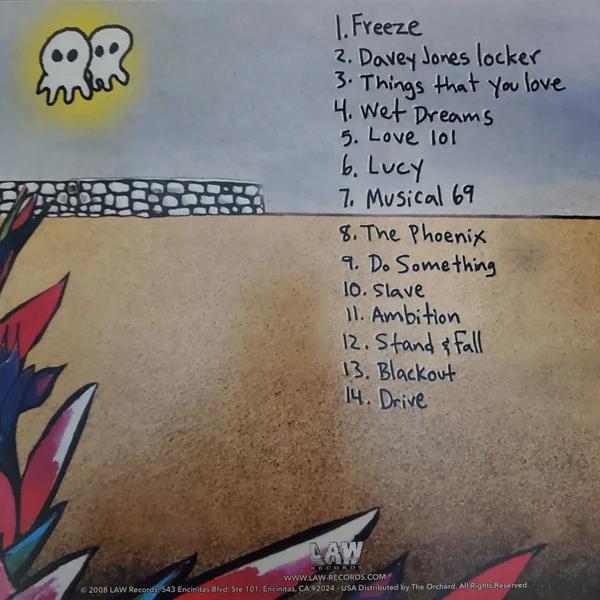 1. Freeze
2. Davey Jones locker
3. Things that you love
4. Wet Dreams
5. Love 101
6. Lucy
7. Musical 69
8. The Phoenix
9. Do Something
10. Slave
11. Ambition
12. Stand & Fall
13. Blackout
14. Drive
LAW
RECORDS
WWW.LAW-RECORDS.COM
© 2008 LAW Records. 543 Encinitas Blvd. Ste 101, Encinitas, CA 92024 - USA Distributed by The Orchard. All Rights Reserved.